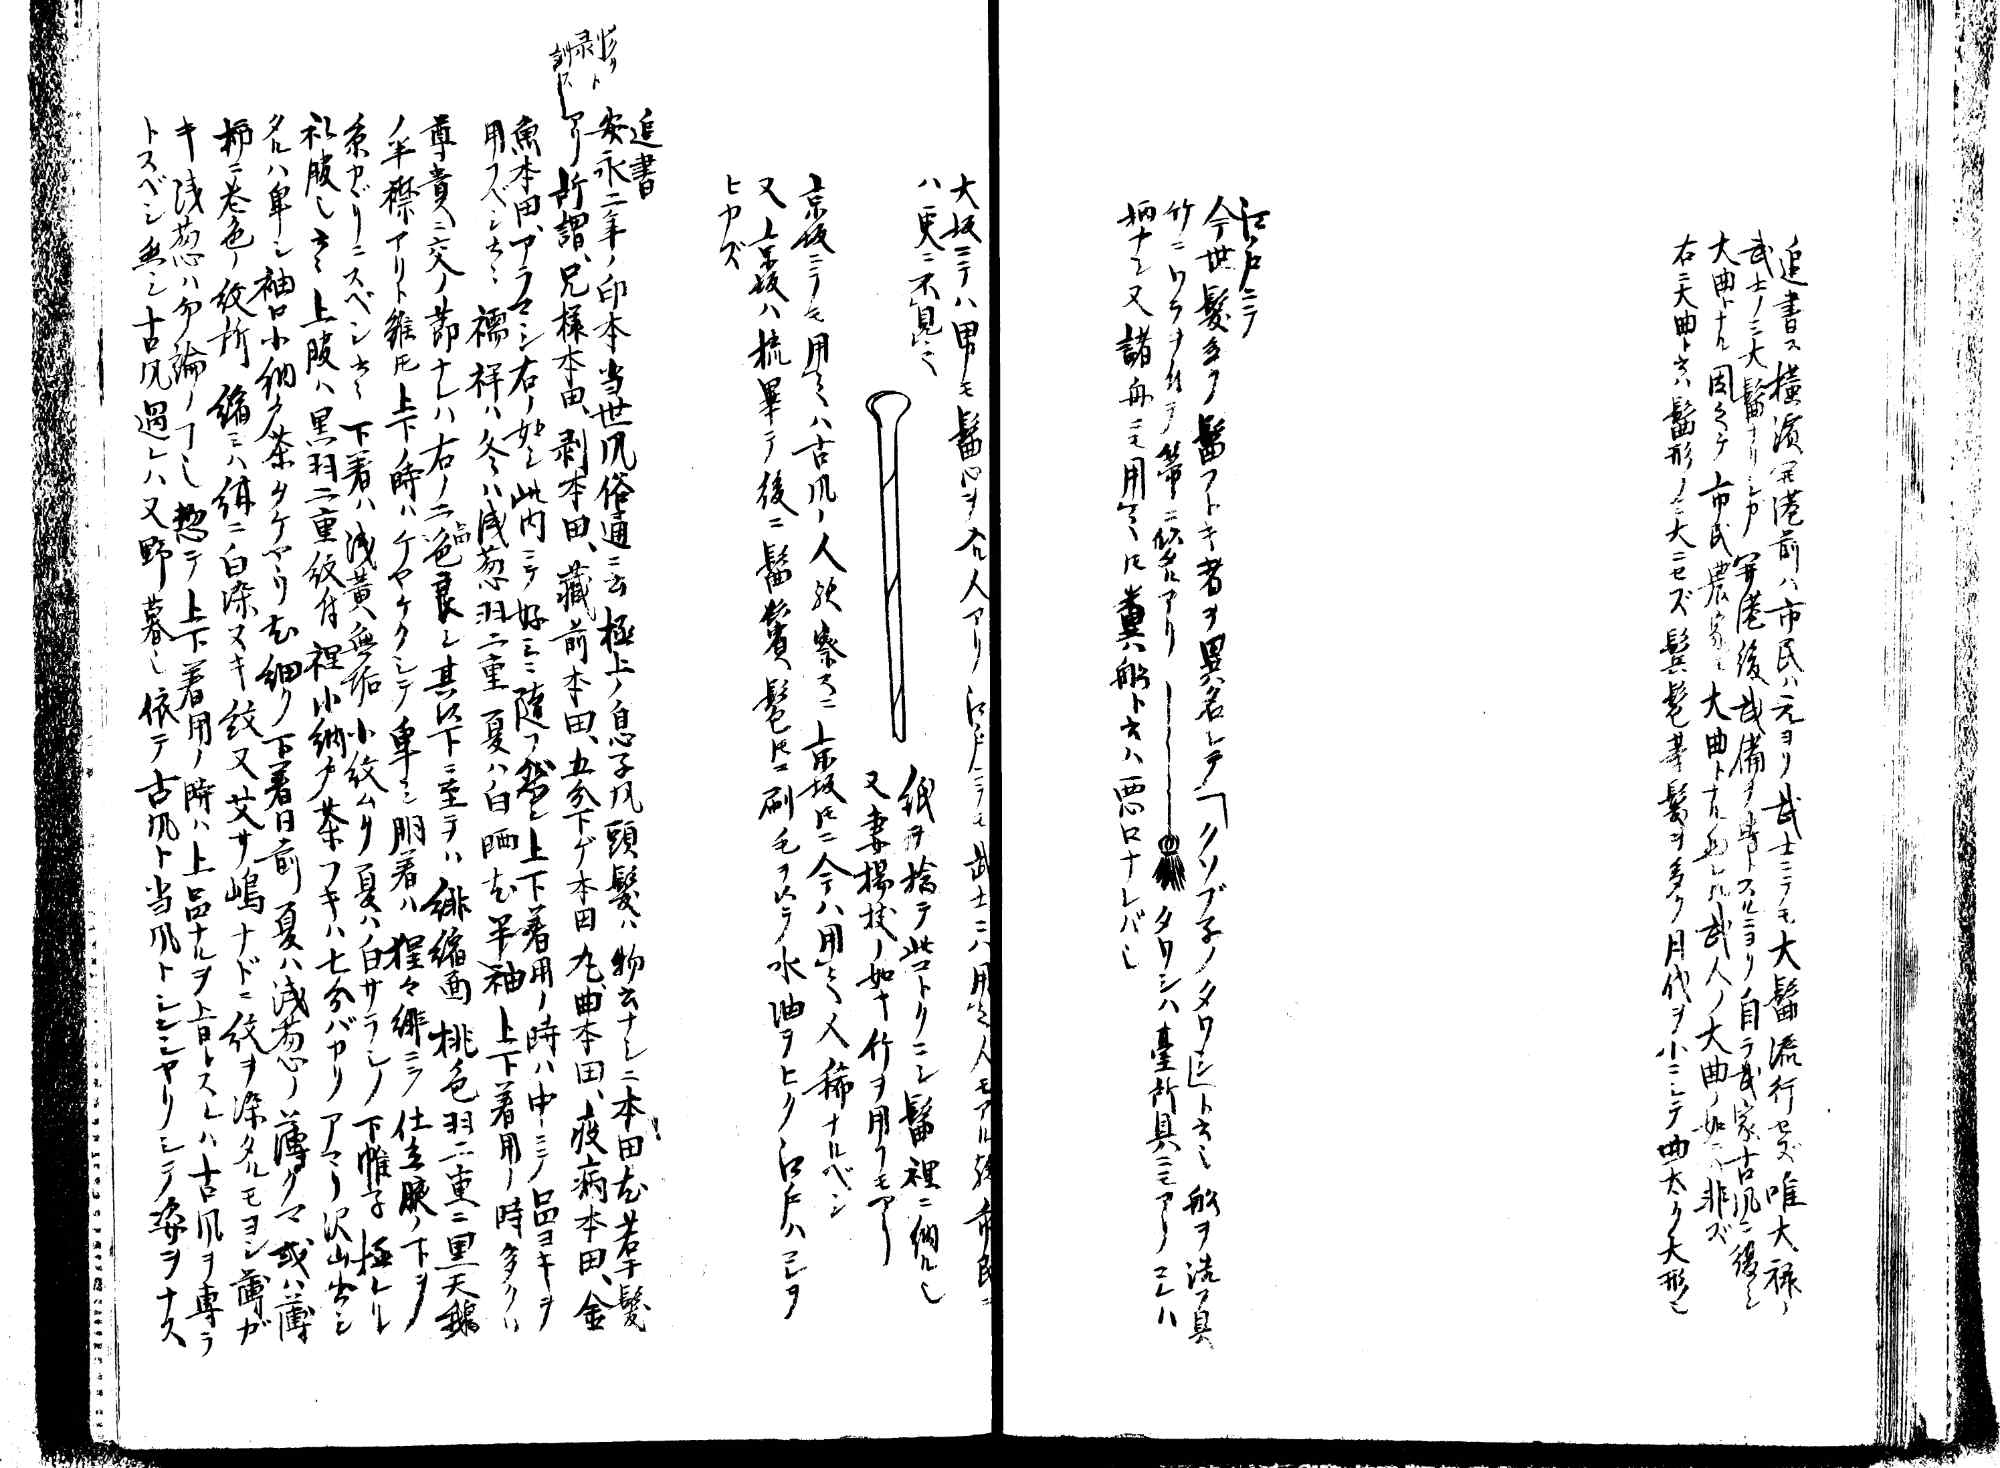 追書ス横濱開港前ハ市民ハ元ヨリ武士ニテモ大髷流行セズ唯大禄ノ
武士ノミ大髷ナリシガ開港後武備ヲ専トスルニヨリ自ラ武家古風ニ復シ
大曲トナル因之テ市民農家モ大曲トナル然レドモ武人ノ大曲ノ如クニハ非ズ
右ニ大曲ト云ハ髷形ノミ大ニセズ鬂髱等髪ヲ多ク月代ヲ小ニシテ曲太ク大形也
江戸ニテ
今世髪多ク髷フトキ者ヲ異名シテ「クソブネノタワシ」ト云也船ヲ洗フ具
竹ニワラヲ
タワシハ臺所具ニモアリコレハ
柄ナシ又諸舟ニモ用フレドモ糞船ト云ハ悪口ナレバ也
大坂ニテハ男モ髷心ヲ入ル人アリ江戸ニテモ武士ニハ用フ人モアル歟市民ニ
ハ更ニ不見之
紙ヲ捻テ此コトクニシ髷裡ニ納ル也
又妻楊枝ノ如キ竹ヲ用フモアリ
京坂ニテモ用之ハ古風ノ人歟察スニ京坂トモニ今ハ用之人稀ナルベシ
又京坂ハ梳畢テ後ニ髷鬢髱トモニ刷毛ヲ以テ水油ヲヒク江戸ハコレヲ
ヒカズ
追書
安永二年ノ印本当世風俗通ニ云極上ノ息子風頭髪ハ物云ナシニ本田也若干髪
アリ所謂兄様本田、剥本田、蔵前本田、五分下ゲ本田、丸曲本田、疫病本田、金
魚本田、アラマシ右ノ如シ此内ニテ好ミニ随フ然シ上下着用ノ時ハ中ニテ品ヨキヲ
用フベシ云々襦袢ハ冬ハ浅葱羽二重夏ハ白晒也半袖上下着用ノ時多クハ
尊貴ニ交ノ節ナレハ右ノ二色良シ其以下ニ至テハ緋縮面桃色羽二重ニ黒天鵞
ノ半襟アリト雖モ上下ノ時ハケヤケクシテ卑シ胴着ハ猩々緋ニテ仕立腋ノ下ヲ
糸カヾリニスベシ云々下着ハ浅黄無垢小紋ムク夏ハ白サラシノ下帷子極レル
礼服也云々上服ハ黒羽二重紋付裡小納戸茶フキハ七分バカリアマリ沢山出シ
タルハ卑シ袖口小納戸茶タケヤリ也細ク下着日前夏ハ浅葱ノ薄クマ或ハ薄
柳ニ巻色ノ紋所縮ミハ絹ニ白染ヌキ紋又艾サ嶋ナドニ紋ヲ染タルモヨシ薄ガ
キ浅葱ハ勿論ノ丁也惣テ上下着用ノ時ハ上品ナルヲ旨トスレハ古風ヲ専ラ
トスベシ無シ古風過レハ又野暮也依テ古風ト当風トシンミヤリシテ姿ヲナス